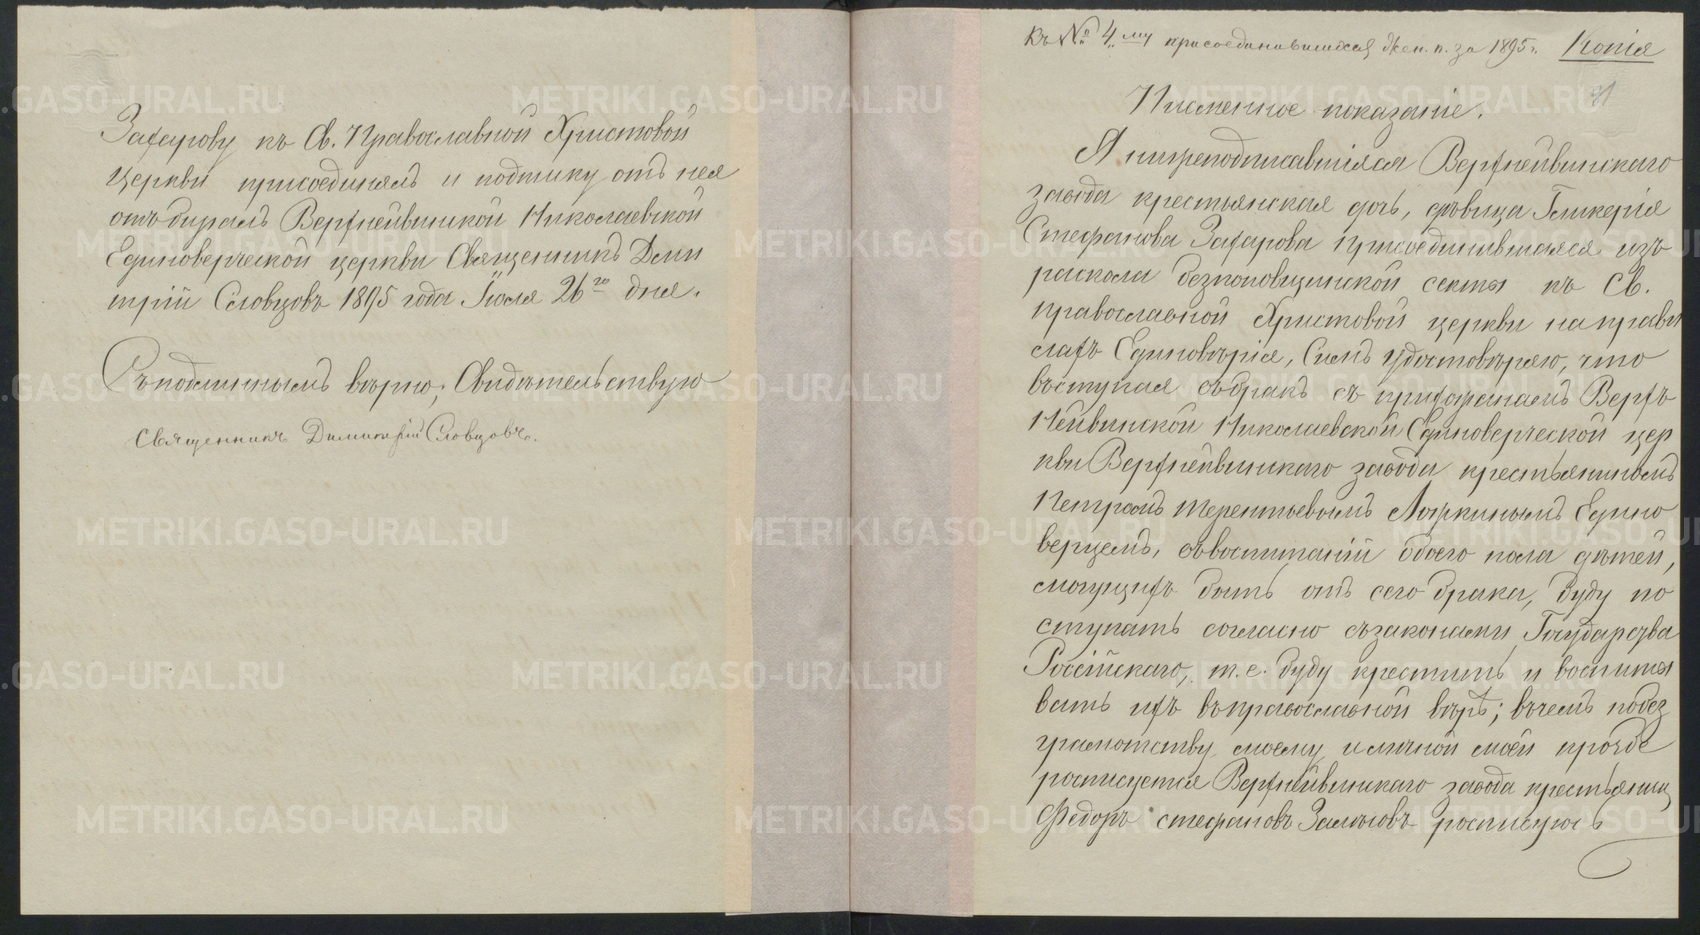 Захарову къ Св. Православной Христовой
Церкви присоединялъ и подписку отъ нея
отъбиралъ Верхнейвинской Николаевской
Единоверческой церкви Священникъ Дими
трій Словцовъ 1895 года Іюля 26го дня.
Съ подлиннымъ вѣрно; Свидѣтельствую
Священникъ Димитрій Словцовъ.
Къ № 4му присоединившихся жен. п. за 1895 г. Копія
Писменное показаніе.
Я нижеподписавшіяся Верхнейвинскаго
завода крестьянская дочь, дѣвица Гликерія
Стефанова Захарова присоединившаяся изъ
раскола безпоповщинской секты къ Св.
православной Христовой церкви на прави
лахъ Единовѣрія, Симъ удостовѣряю, что
въступая въ бракъ съ прихожаниномъ Верхъ
Нейвинской Николаевской Единоверческой цер
кви Верхнейвинскаго завода крестьяниномъ
Петромъ Терентьевымъ Едино
верцемъ, въ воспитаніи обоего пола дѣтей,
могущихъ быть отъ сего брака, буду по
ступать согласно съ законами Государства
Россійскаго, т. е. буду крестить и воспиты
вать ихъ въ православной вѣрѣ; въ чемъ по без
грамотству моему и личной моей прозбѣ
росписуется Верхнейвинскаго завода крестьянин
Федоръ Стефановъ росписуюсь
METRIKI.GASO-URAL.RU